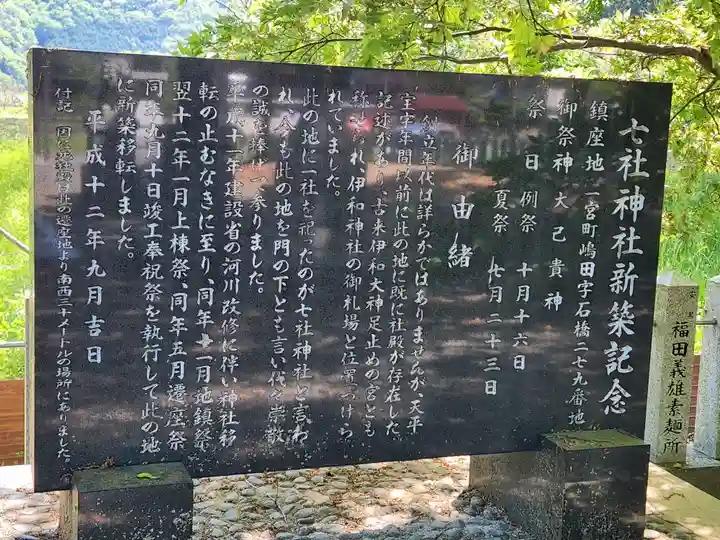 七社神社新築記念
鎮座地 一宮町嶋田字石橋二七九番地
御祭神 大己貴神
祭日 例祭 十月十六日
夏祭 七月二十三日
御由緒
創立年代は詳らかではありませんが、天平
宝字年間以前に此の地に既に社殿が存在した
記述があり、古来伊和大神足止めの宮とも
称せられ、伊和神社の御礼場と位置づけら
れていました。
此の地に一社を祀ったのが七社神社と言わ
れ、今も此の地を門の下とも言い伝え崇敬
の誠を捧げて参りました。
平成十一年建設省の河川改修に伴い神社移
転の止むなきに至り、同年十一月地鎮祭
翌十二年一月上棟祭、同年五月遷座祭
同年九月十日竣工奉祝祭を執行して此の地
に新築移転しました。
平成十二年九月吉日
付記 因に元社殿は此の遷座地より南西三十メートルの場所にありました。
福田義雄素麺所